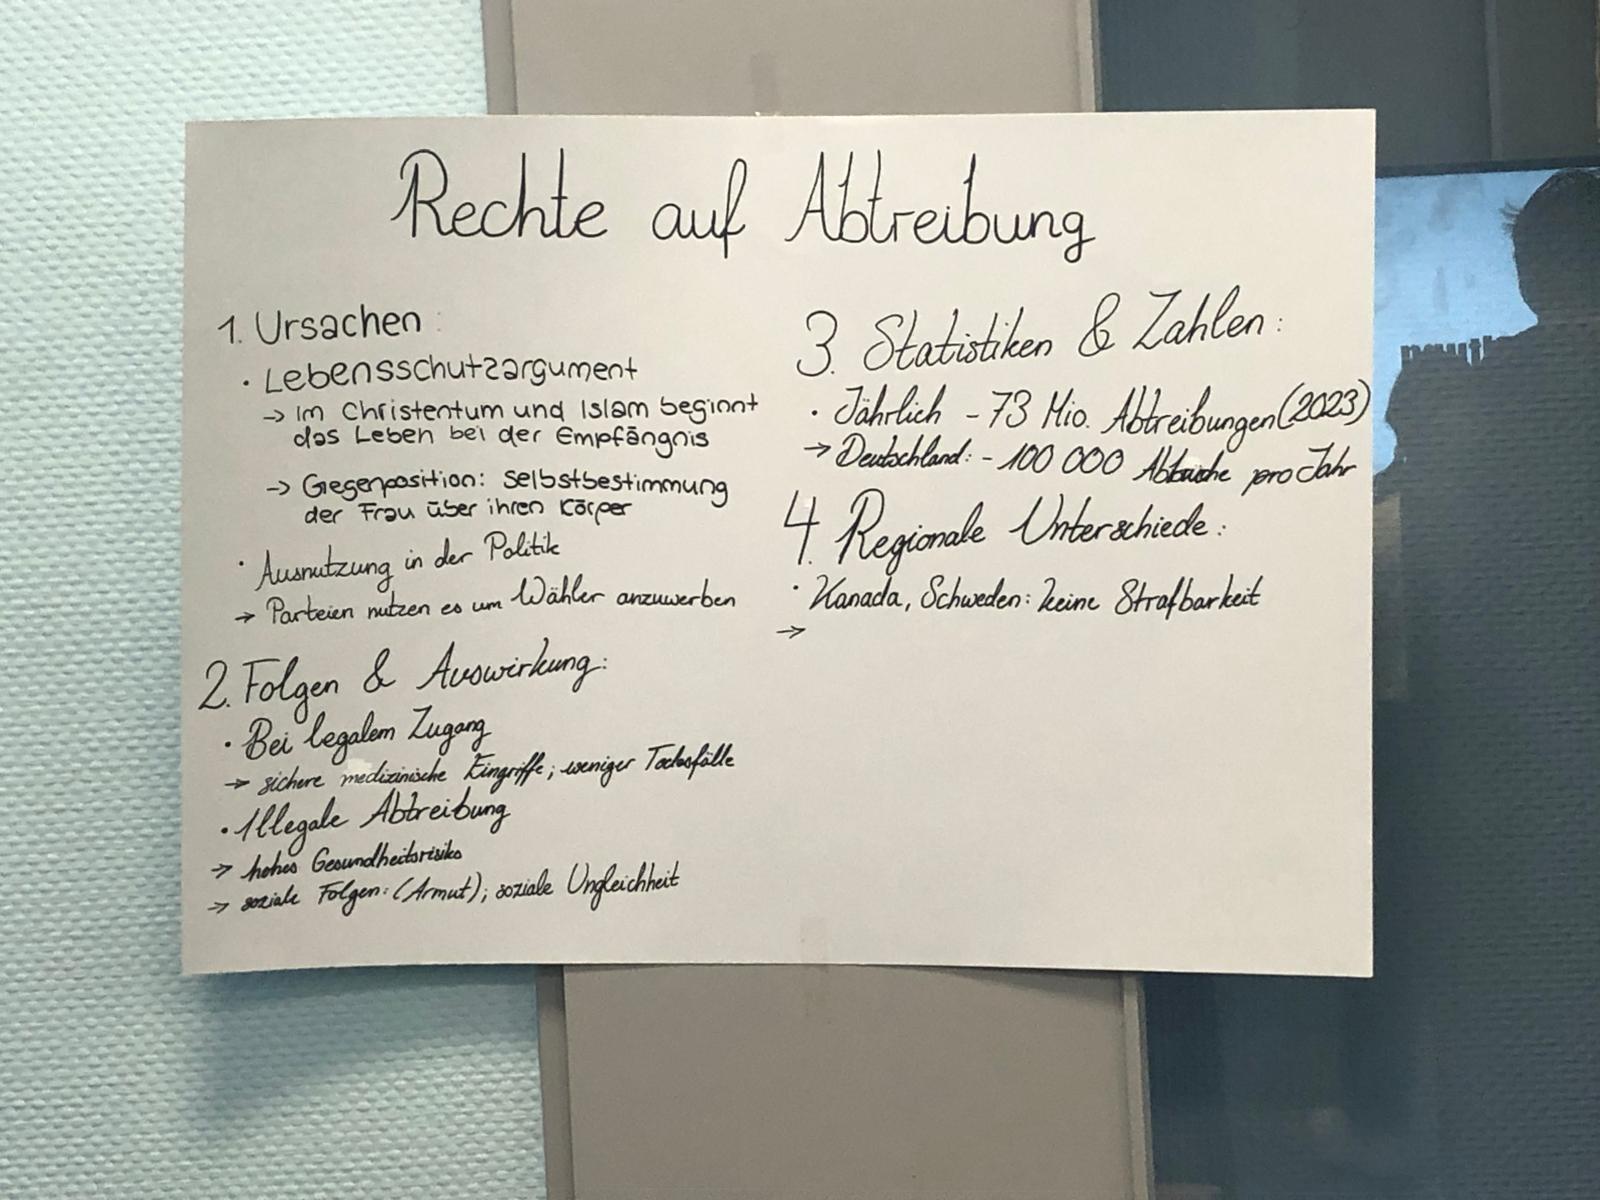 Rechte auf Abtreibung
1. Ursachen:
· Lebensschutzargument
→ Im Christentum und Islam beginnt
das Leben bei der Empfängnis
→ Gegenposition: Selbstbestimmung
der Frau über ihren Körper
· Ausnutzung in der Politik
→ Parteien nutzen es um Wähler anzuwerben
2. Folgen & Auswirkung:
· Bei legalem Zugang
→ sichere medizinische Eingriffe; weniger Todesfälle
· Illegale Abtreibung
→ hohes Gesundheitsrisiko
→ soziale Folgen: (Armut); soziale Ungleichheit
3. Statistiken & Zahlen:
· Jährlich - 73 Mio. Abtreibungen (2023)
→ Deutschland: - 100 000 Abbrüche pro Jahr
4. Regionale Unterschiede:
· Kanada, Schweden: keine Strafbarkeit
→